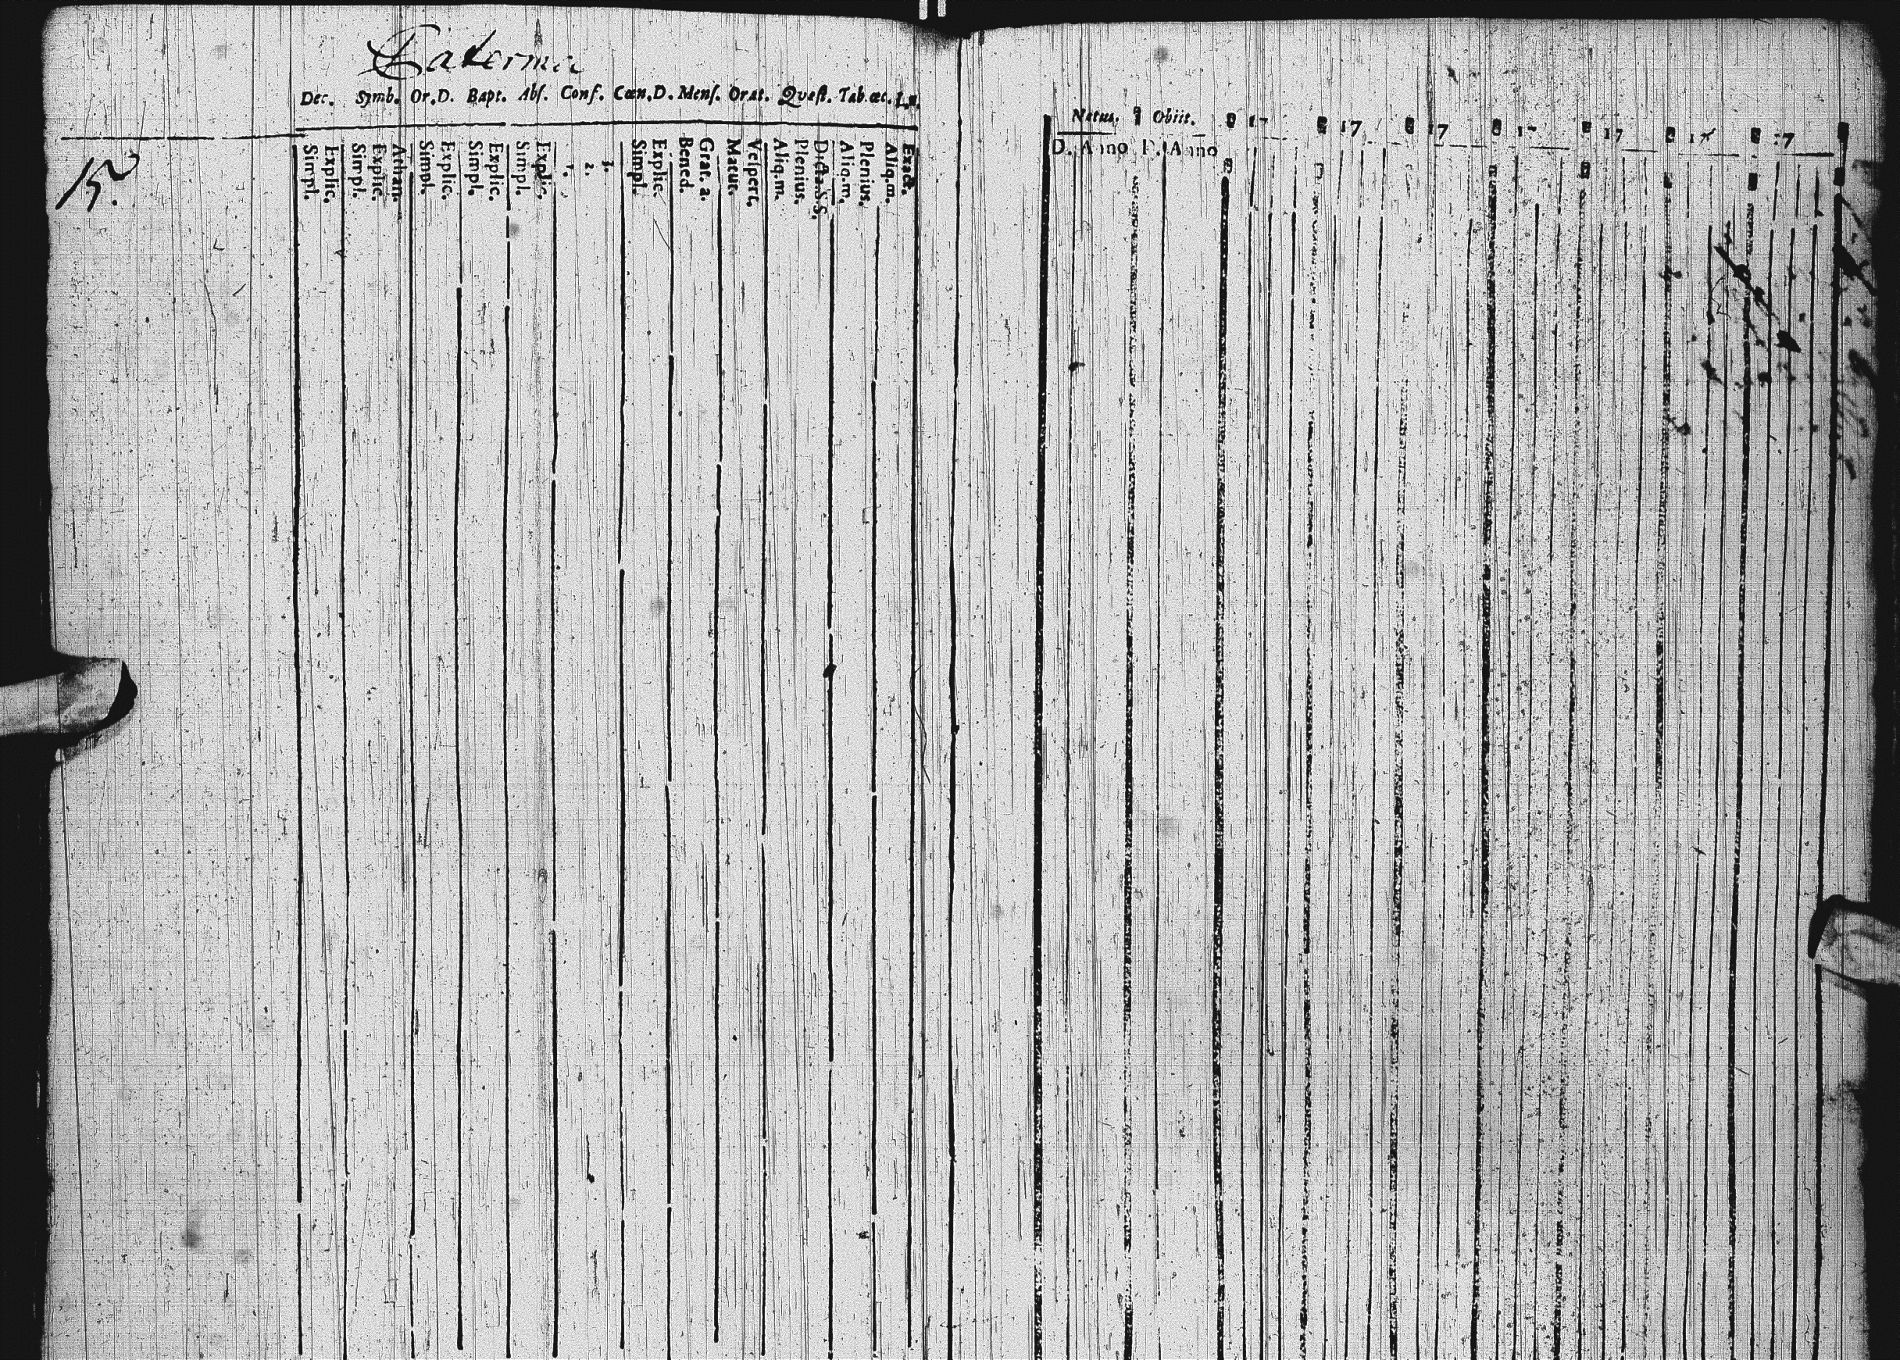 Laterma
Dec. Symb. Or.D. Bapt. Abſ. Conf. Cœn.D. Menſ. Orat. Quæſt. Tab.œc. L.n.
15.
Simpl. Explic. Simpl. Explic. Athan. Simpl. Explic. Simpl. Explic. Simpl. Explic. 1. 2. 3. Simpl. Explic. Bened. Grat. a. Matut. Veſpert. Aliq.m. Plenius. Dicta.S.S. Aliq.m. Plenius. Aliq.m. Exact.
Natus. Obiit. 17 17 17 17 17 17 17
D. Anno D. Anno